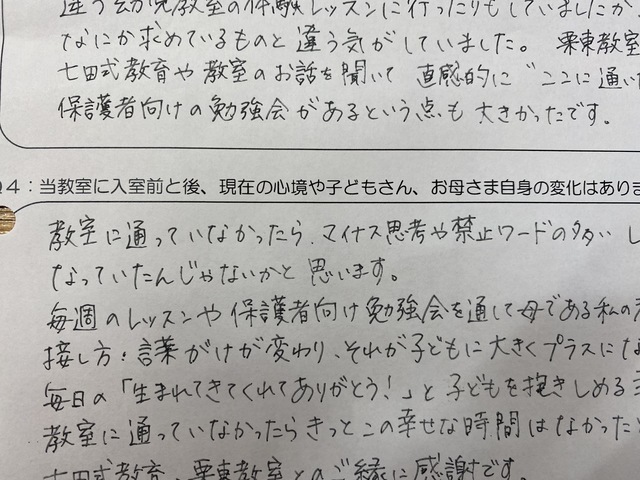 違う幼児教室の体験レッスンに行ったりもしていましたが
なにか求めているものと違う気がしていました。 栗東教室
七田式教育や教室のお話を聞いて 直感的に"ここに通い
保護者向けの勉強会があるという点も大きかったです。
Q4：当教室に入室前と後、現在の心境や子どもさん、お母さま自身の変化はありま
教室に通っていなかったら、マイナス思考や禁止ワードの多い し
なっていたんじゃないかと思います。
毎週のレッスンや保護者向け勉強会を通して母である私の
接し方・言葉がけが変わり、それが子どもに大きくプラスにな
毎日の「生まれてきてくれてありがとう!」と子どもを抱きしめる
教室に通っていなかったらきっとこの幸せな時間はなかったと
七田式教育、栗東教室とのご縁に感謝です。